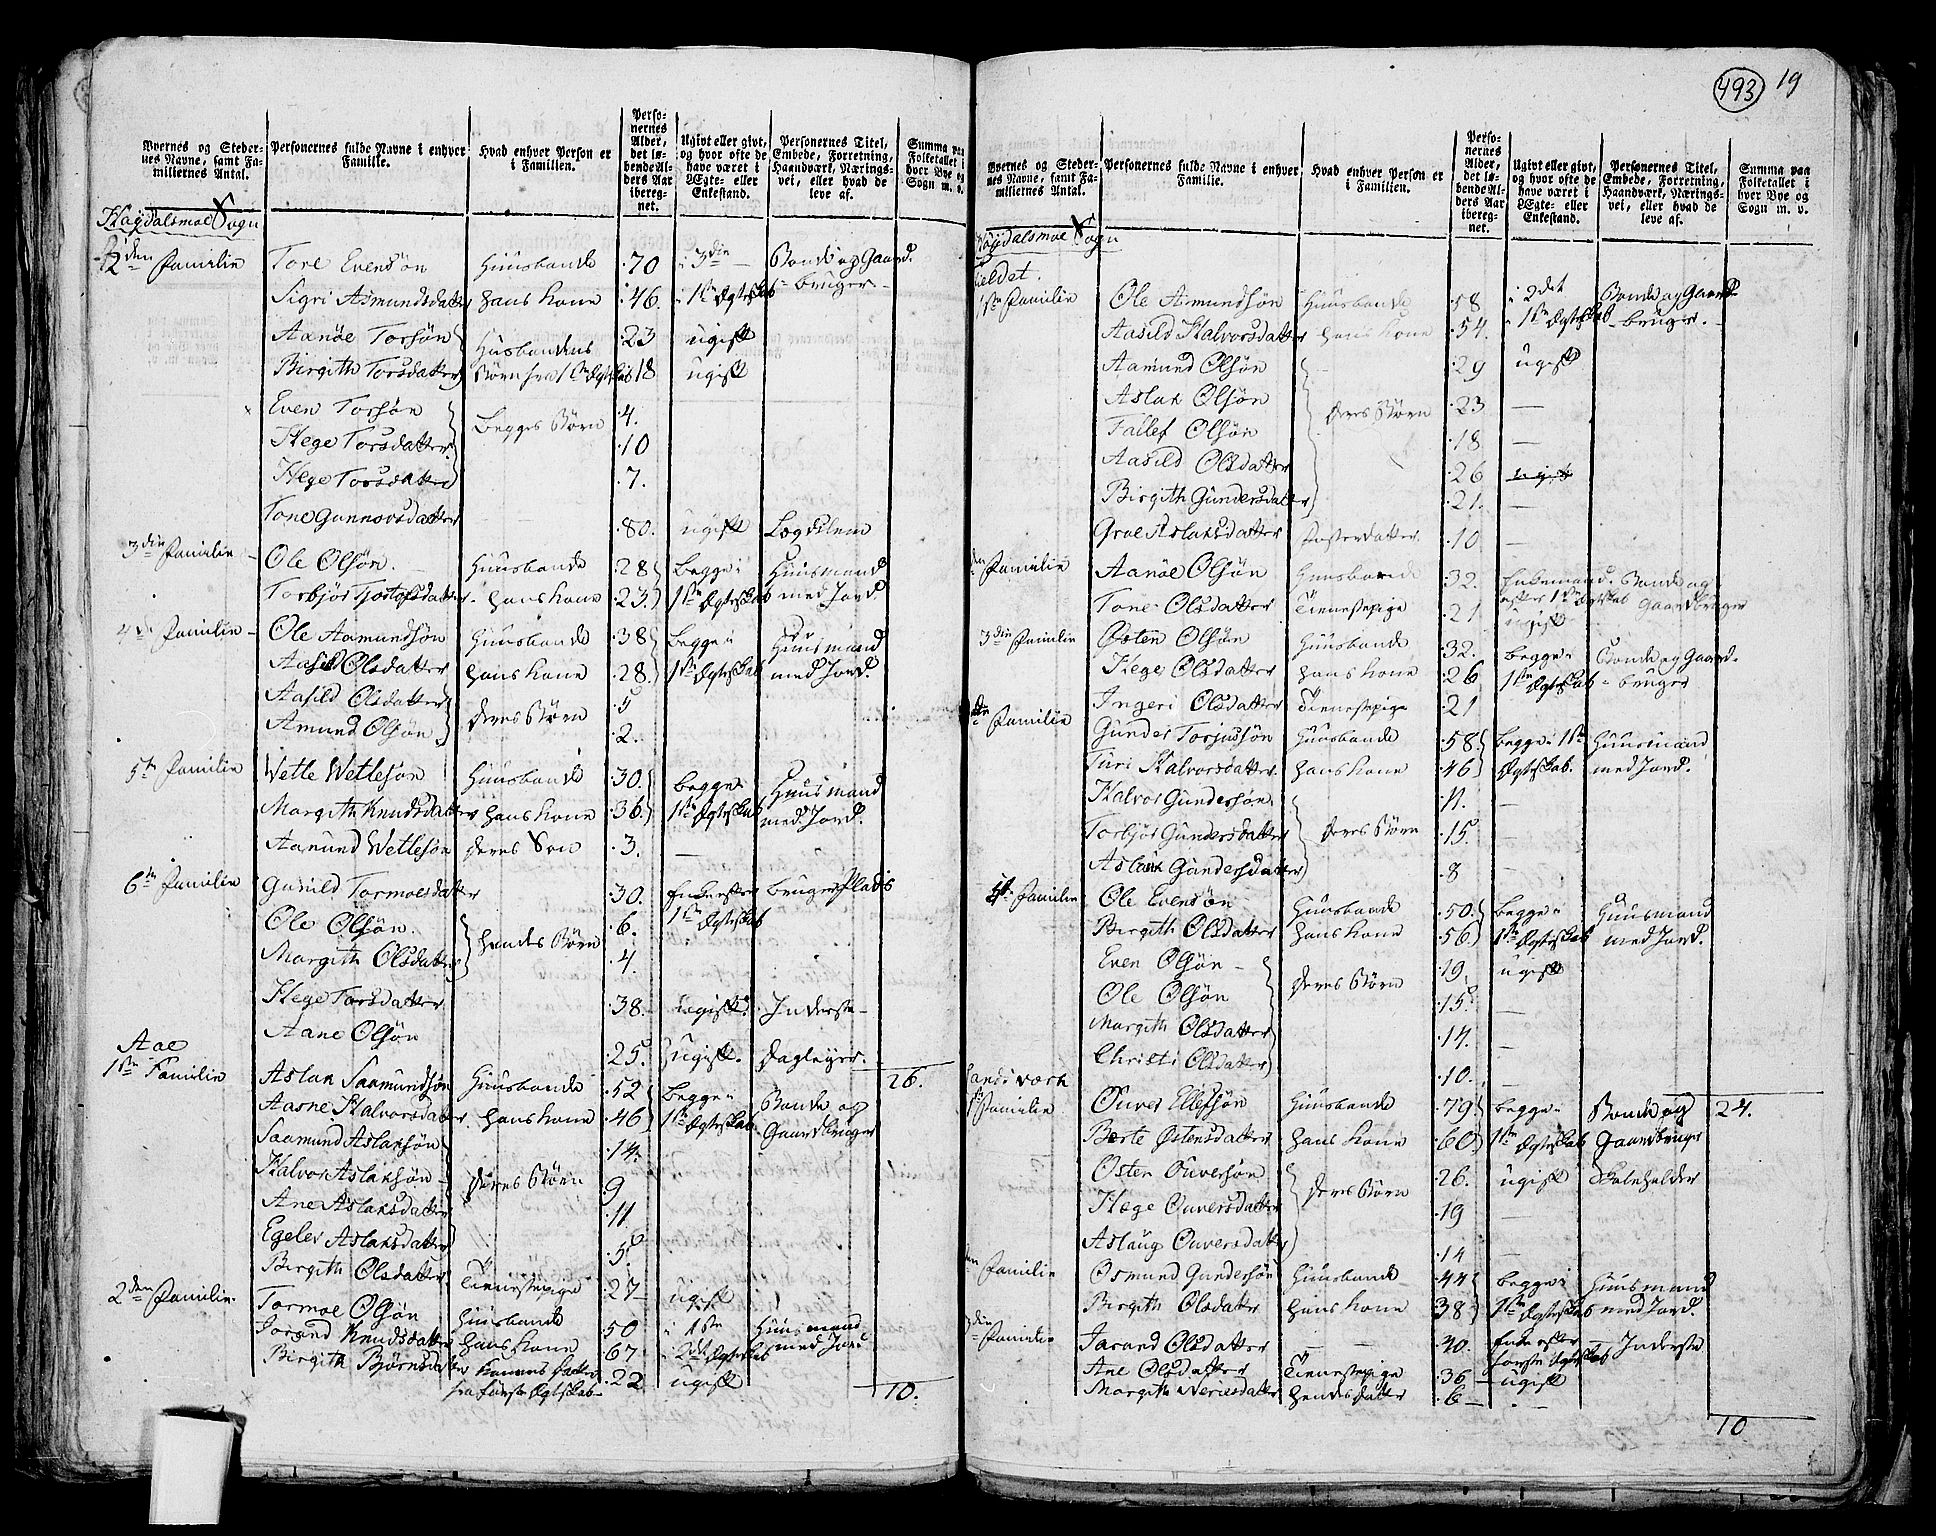 Byernes og Stedernes Navne, samt Familiernes Antal.
Personernes fulde Navne i enhver Familie.
Hvad enhver Person er i Familien.
Personernes Alder, det løbende Alders Aar iberegnet.
Ugivt eller givt, og hvor ofte de have været i Ægte- eller Enkestand.
Personernes Titel, Embede, Forretning, Haandværk, Næringsvei, eller hvad de leve af.
Summa paa Folketallet i hver Bye og Sogn m. v.
Høydalsmoe Sogn
2den Familie Tore Evensøn Huusbonde 70 i 3die Bonde og Gaard-
Sigri Asmundsdatter hans Kone 46. i 1ste Ægteskab bruger
Aanøe Torsøn 23 ugift
Husbondens
Birgith Torsdatter Børn fra 1ste Ægteskab 18 ugift
Even Torsøn 4.
Begges Børn
Hege Torsdatter 10
Hege Torsdatter 7.
Tone Gunnovsdatter 80. ugift Lægdslem
3die Familie Ole Olsøn Huusbonde 28 Begge i Huusmand
Torbjør Tjostofsdatter hans Kone 23 1ste Ægteskab med Jord
4de Familie Ole Aamundsøn Huusbonde 38 Begge i Huusmand
Aasild Olsdatter hans Kone 28. 1ste Ægteskab med Jord.
Aasild Olsdatter 5
deres Børn
Amund Olsøn 2.
5te Familie Wetle Wetlesøn Huusbonde 30. Begge i Huusmand
Margith Knudsdatter hans Kone 36. 1ste Ægteskab med Jord.
Aamund Wetlesøn deres Søn 3. —
6te Familie Gunild Tormoesdatter 30. Enke efter bruger Plads
Ole Olsøn 6. 1ste Ægteskab
hendes Børn
Margith Olsdatter 4.
Hege Torsdatter 38. ugift Inderste
Aane Olsøn 25. ugift. Dagleyer.
26.
Aae
1ste Familie Aslak Saamundsøn Huusbonde 52 Begge i Bonde og
Aasne Halvorsdatter hans Kone 46 1ste Ægteskab Gaardbruger
Saamund Aslaksøn 14.
Halvor Aslaksøn deres Børn 9
Ane Aslaksdatter 11.
Egelev Aslaksdatter 5
Birgith Olsdatter Tienestepige 27 ugift
2den Familie Tormoe Olsøn Huusbonde 50 i 1ste Huusmand
Jorand Knudsdatter hans Kone 67 i 2det Ægteskab med Jord
Birgith Bjørnsdatter Konens Datter 22 ugift
fra første Ægteskab
10.
493 19
Byernes og Stedernes Navne, samt Familiernes Antal.
Personernes fulde Navne i enhver Familie.
Hvad enhver Person er i Familien.
Personernes Alder, det løbende Alders Aar iberegnet.
Ugivt eller givt, og hvor ofte de have været i Ægte- eller Enkestand.
Personernes Titel, Embede, Forretning, Haandværk, Næringsvei, eller hvad de leve af.
Summa paa Folketallet i hver Bye og Sogn m. v.
Høydalsmoe Sogn
1ste Familie Ole Asmundsøn Huusbonde 58 i 2det Bonde og Gaard-
Aasild Halvorsdatter hans Kone 54. 1ste Ægteskab bruger.
Aamund Olsøn 29 ugift
Aslak Olsøn 23 —
deres Børn
Tallef Olsøn 18 —
Aasild Olsdatter 26 ugift
Birgith Gundersdatter 21. —
Groe Aslaksdatter Fosterdatter 10 —
Familie Aanøe Olsøn Huusbonde 32. Enkemand Bonde og
efter 1ste Ægteskab Gaardbruger
Tone Olsdatter Tienestepige 21 ugift
3die Familie Østen Olsøn Huusbonde 32. Begge i Bonde og Gaard-
Hege Olsdatter hans Kone 26 1ste Ægteskab bruger
Ingeri Olsdatter Tienestepige 21
Familie Gunder Torjussøn Huusbonde 58. Begge i 1ste Huusmand
Turi Halvorsdatter hans Kone 46 Ægteskab. med Jord.
Halvor Gundersøn 11. —
Torbjør Gundersdatter deres Børn 15. —
Aslaug Gundersdatter 8
5te Familie Ole Evensøn Huusbonde 50. Begge i Huusmand
Birgith Olsdatter hans Kone 56. 1ste Ægteskab med Jord.
Even Olsøn 19. ugift
deres Børn
Ole Olsøn 15. —
Margith Olsdatter 14. —
Christi Olsdatter 10. —
24.
Familie Ouver Ellefsøn Huusbonde 79 Begge i Bonde og
Berte Østensdatter hans Kone 60 1ste Ægteskab Gaardbruger
Østen Ouversøn 26. ugift Skoleholder
deres Børn
Hæge Ouversdatter 19 —
Aslaug Ouversdatter 14 —
Familie Osmund Gundersøn Huusbonde 44 Begge i Huusmand
Birgith Olsdatter hans Kone 38 1ste Ægteskab med Jord.
Familie Jorand Olsdatter — 40. Enke efter Inderste
første Ægteskab
Ane Olsdatter Tienestepige 36 ugift
Margith Weriesdatter hendes Datter 6 —
10